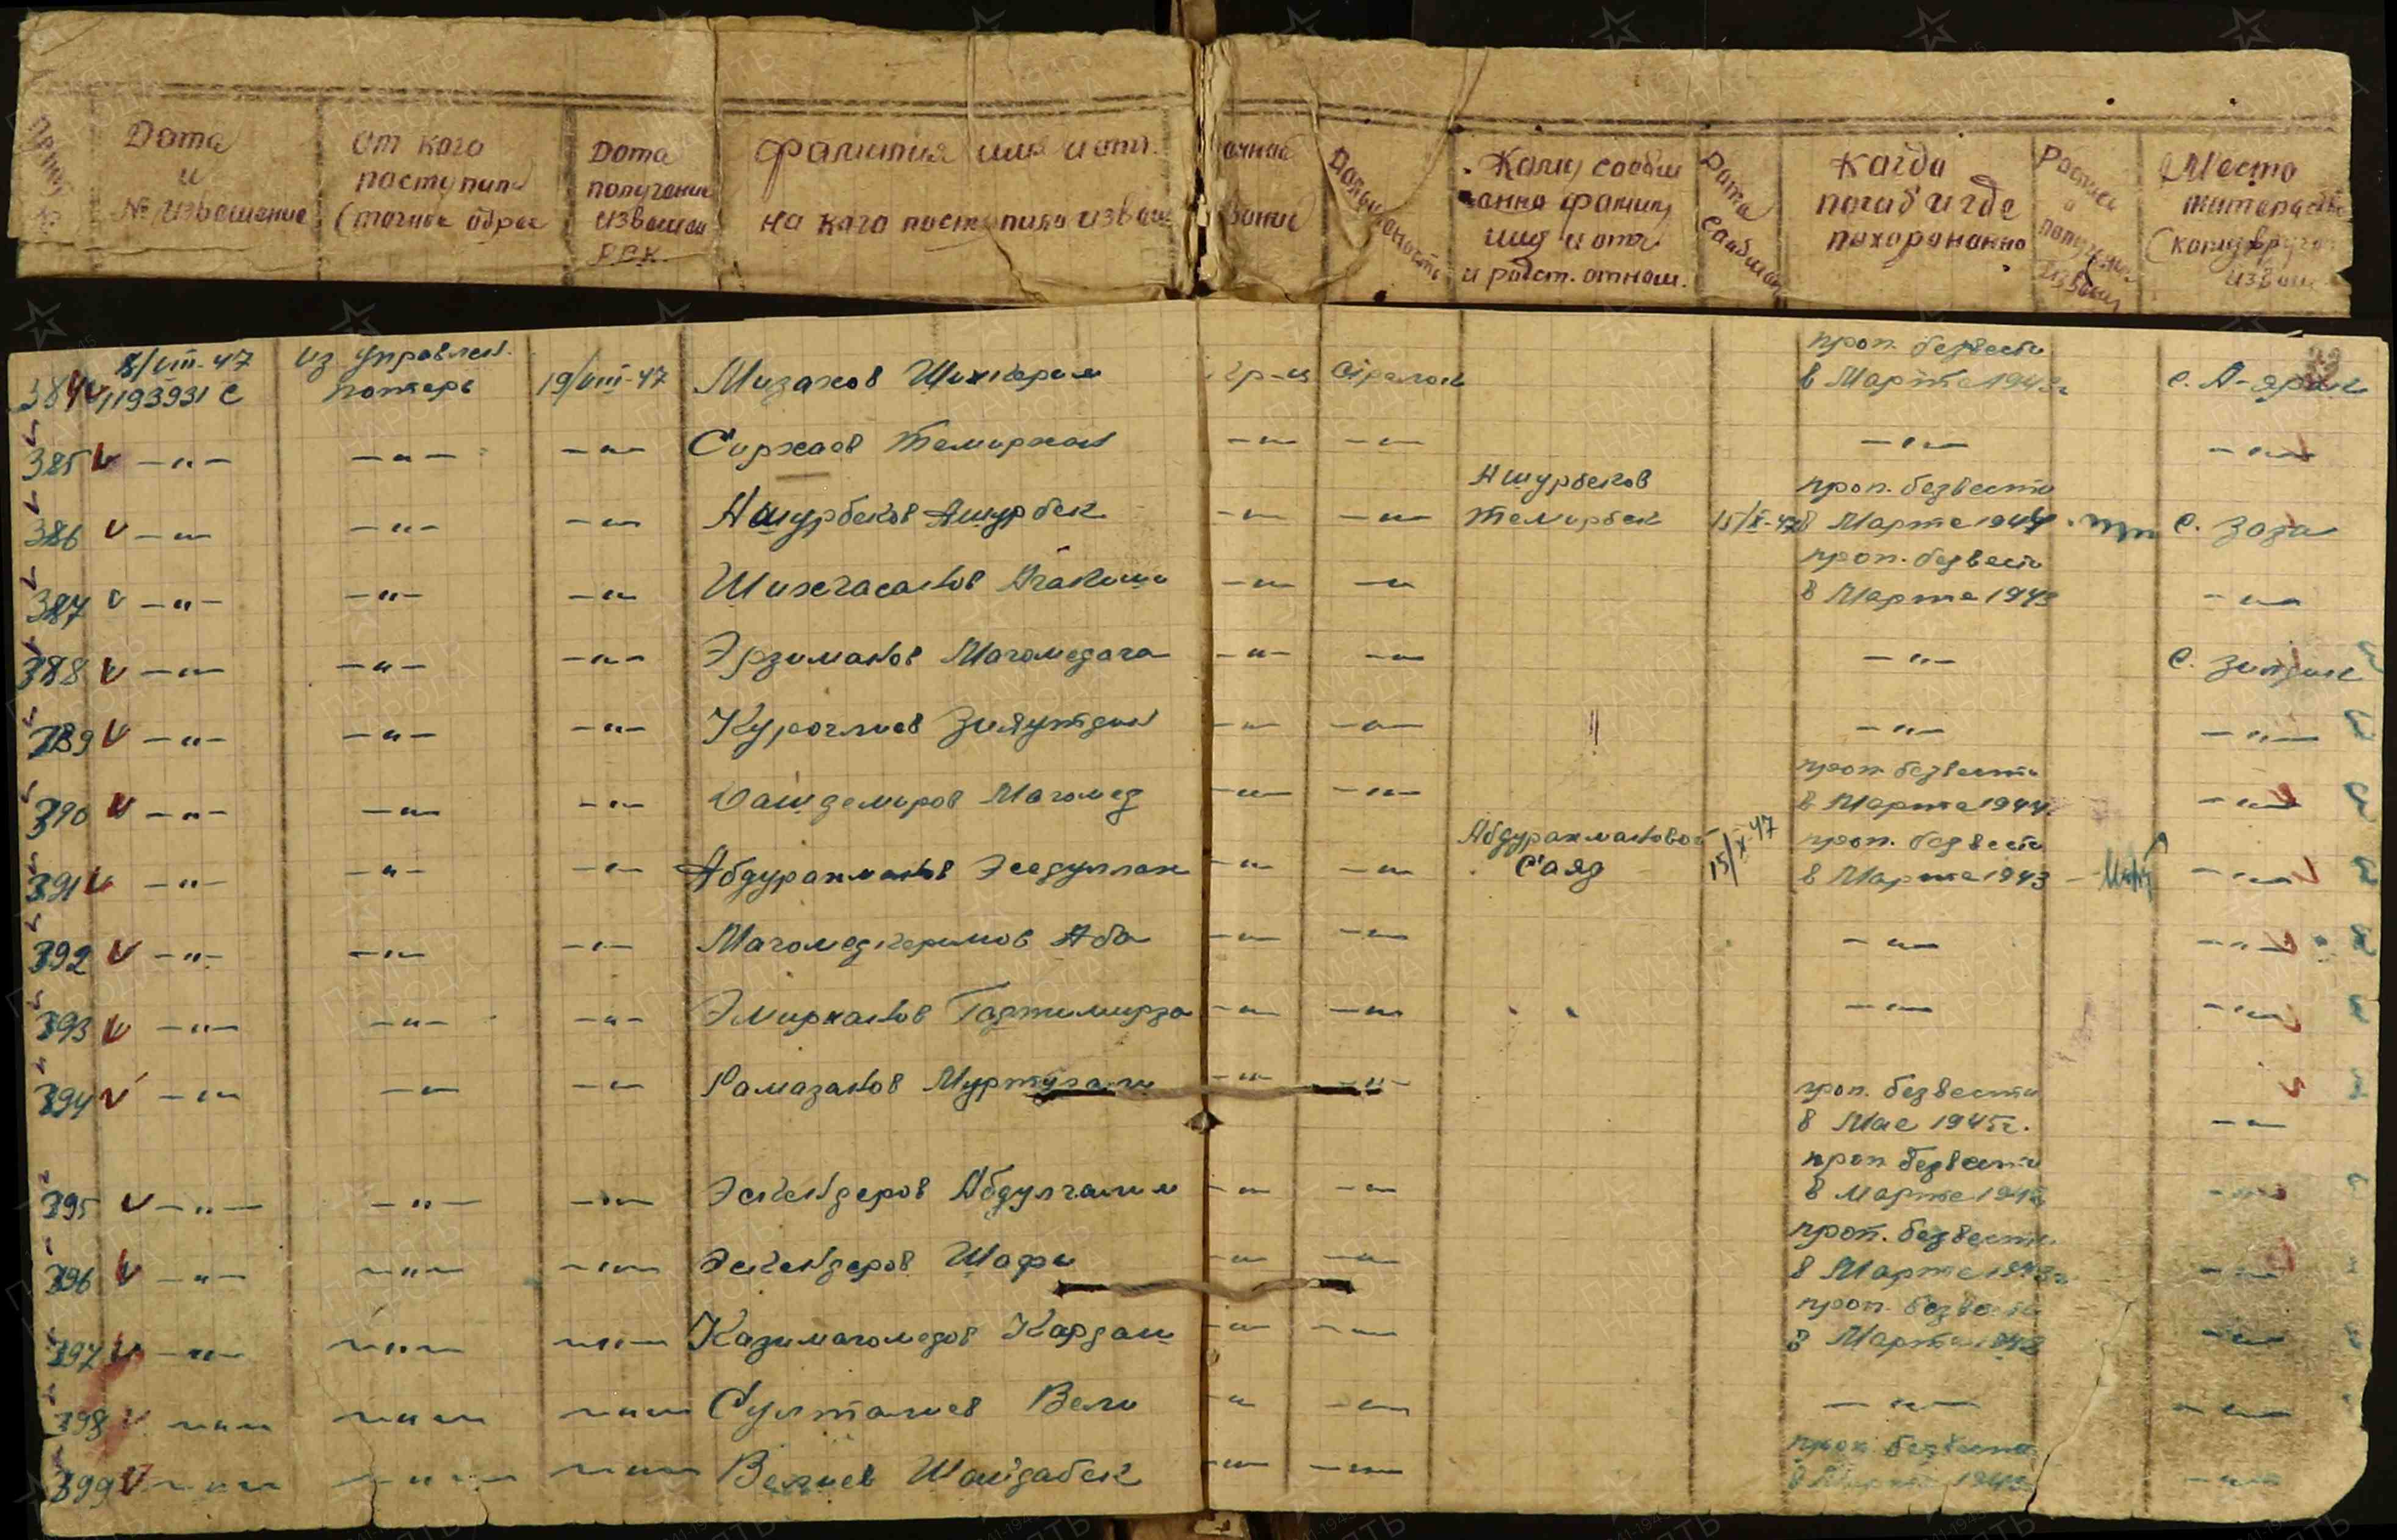 Дата и № извещение
От кого поступил (точное адрес
Дата получение извещен РВК.
Фамилия имя и отч. на кого поступило извещ
Должность
Кому сообщ фамил имя и отч. и родст. отнош.
Дата сообщен
Когда погиб и где похоронено
Роспись о получен. извещ
Место жительство (кому вруч извещ
384 8/VIII-47 1193931 с из управлен. потерь 19/VIII-47 Мизахов Шихкерим кр-ц стрелок проп. безвести в Марте 1943г с. А-ярак
385 -"- -"- -"- Сиржаев Темирхан -"- -"- -"- -"-
386 -"- -"- -"- Ашурбеков Ашурбек -"- -"- Ашурбеков Темирбек 15/X-47 проп. безвести в Марте 1944 с. Зази
387 -"- -"- -"- Шихгасанов Агакиши -"- -"- проп. безвести в Марте 1943 -"-
388 -"- -"- -"- Эрзиманов Магомедага -"- -"- -"- с. Зилдик
389 -"- -"- -"- Куроглиев Зияутдин -"- -"- " -"- -"-
390 -"- -"- -"- Дашдемиров Магомед -"- -"- проп безвести в Марте 1944г. -"-
391 -"- -"- -"- Абдурахманов Эседуллах -"- -"- Абдурахмановой Саяд 15/X-47 проп. безвести в Марте 1943 -"-
392 -"- -"- -"- Магомедкеримов Аба -"- -"- -"- -"-
393 -"- -"- -"- Эмирханов Гаджимирза -"- -"- -"- -"-
394 -"- -"- -"- Рамазанов Муртузали -"- -"- проп. безвести в Мае 1945г. -"-
395 -"- -"- -"- Эскендеров Абдулгалим -"- -"- проп безвести в Марте -"-
396 -"- -"- -"- Эскендеров Шафи -"- -"- проп. безвести в Марте 1943г. -"-
397 -"- -"- -"- Казимагомедов Кардаш -"- -"- проп. безвести в Марте 1943 -"-
398 -"- -"- -"- Султалиев Вели -"- -"- -"- -"-
399 -"- -"- -"- Велиев Шайдабек -"- -"- проп безвести в Марте 1943 -"-